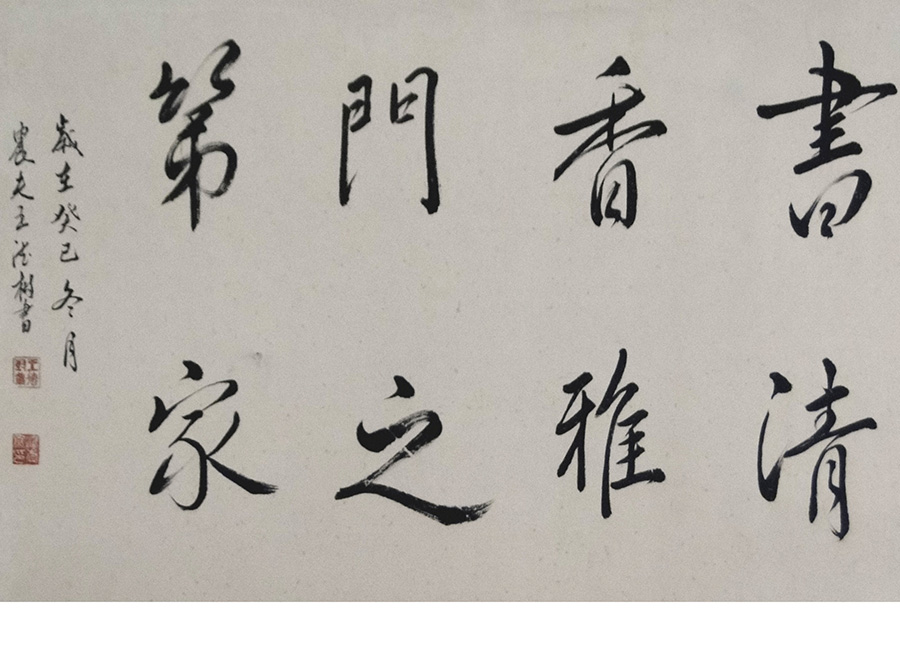 書香門第
清雅之家
歲在癸巳冬月
農夫王樹書